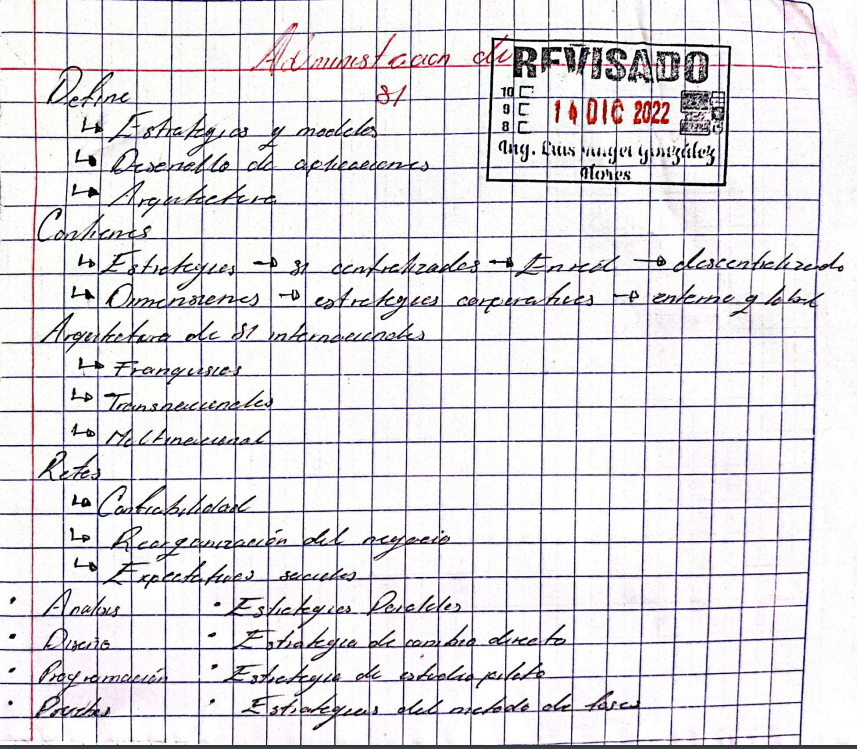 Administracion de
SI
REVISADO
10
9
8
14 DIC 2022
Ing. Luis Angel González
Flores
Define
↳ Estrategias y modelos
↳ Desarrollo de aplicaciones
↳ Arquitectura
Contienes
↳ Estrategias → SI centralizados → En red → descentralizado
↳ Dimensiones → estrategias corporativas → entorno global
Arquitectura de SI internacionales
↳ Franquicias
↳ Transnacionales
↳ Multinacional
Retos
↳ Confiabilidad
↳ Reorganización del negocio
↳ Expectativas sociales
• Analisis • Estrategias Paralelas
• Diseño • Estrategia de cambio directo
• Programación • Estrategia de estudio piloto
• Pruebas • Estrategias del metodo de fases